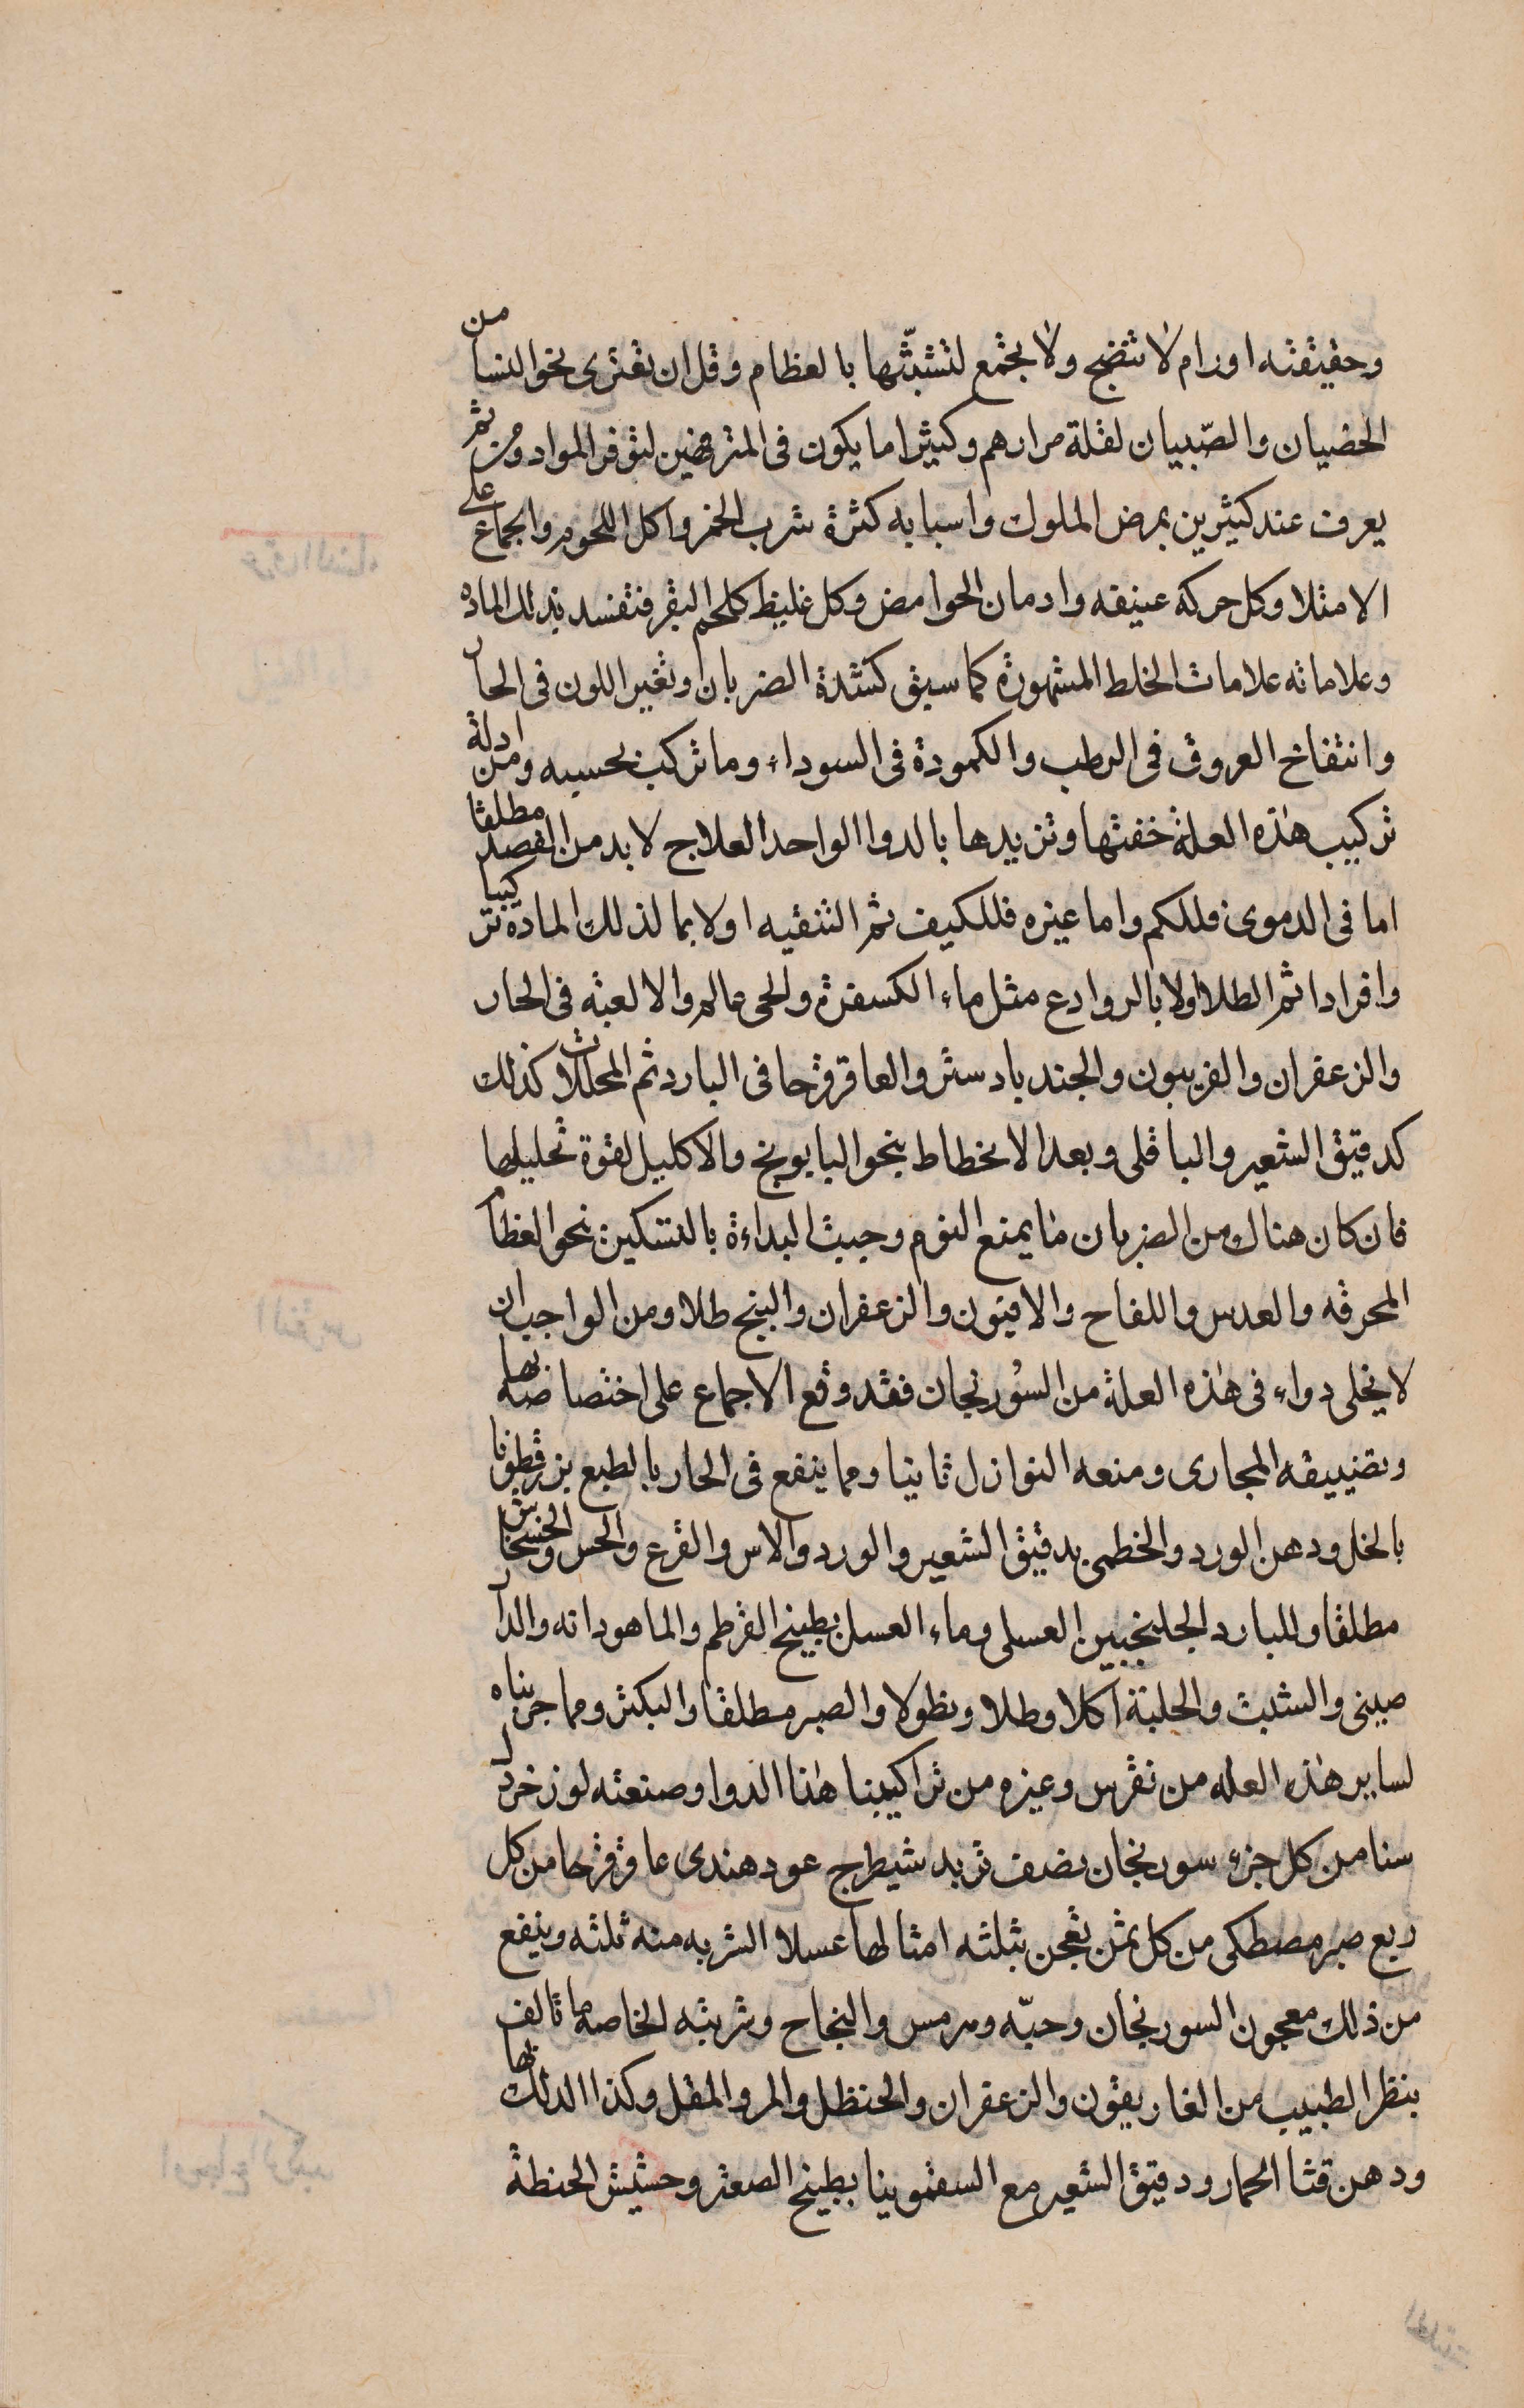 وحقيقته اورام لا تنضج ولا تجتمع لتشبثها بالعظام وقل ان تعترى نحو النسا من
الخصيان والصبيان لقلة مرارهم وكثيرا ما يكون فى المترفهين لتوفر المواد ومن ثم
يعرف عند كثيرين بمرض الملوك واسبابه كثرة شرب الخمر واكل اللحوم والجماع على
الامتلا وكل حركة عنيفه وادمان الحوامض وكل غليظ كلحم البقر فتفسد بذلك الماده
وعلاماته علامات الخلط المشهورة كما سبق كشدة الضربان وتغير اللون فى الحار
وانتفاخ العروق فى الرطب والكمودة فى السوداء وما تركب بحسبه ومن ادلة
تركيب هذه العلة خفتها وتزيدها بالدوا الواحد العلاج لا بد من الفصد مطلقا
اما فى الدموى فللكم واما غيره فللكيف ثم التنقيه اولا بما لذلك المادة تركيبا
وافرادا ثم الطلا اولا بالروادع مثل ماء الكسفرة والحى عالم والالعبه فى الحار
والزعفران والفربيون والجندبادستر والعاقرقرحا فى البارد ثم المحللات كذلك
كدقيق الشعير والباقلى وبعد الانحطاط بنحو البابونج والاكليل لقوة تحليلها
فان كان هناك من الضربان ما يمنع النوم وجبت البداءة بالتسكين نحو العظام
المحرقه والعدس واللفاح والافيون والزعفران والبنج طلا ومن الواجب ان
لا يخلى دواء فى هذه العلة من السورنجان فقد وقع الاجماع على اختصاصه بها
وتضييقه المجارى ومنعه النوازل ثانيا ومما ينفع فى الحار بالطبع بزرقطونا
بالخل ودهن الورد والخطمى بدقيق الشعير والورد والاس والقرع والخس والخشخاش
مطلقا وللبارد الجلنجبين العسلى وماء العسل بطبيخ القرطم والماهودانه والدار
صينى والشبت والحلبة اكلا وطلا ونطولا والصبر مطلقا والبكتر ومما جربناه
لساير هذه العله من نقرس وغيره من تراكيبنا هذا الدوا وصنعته لوز خردل
سنا من كل جزء سورنجان نصف تربد شيطرج عود هندى عاقرقرحا من كل
ربع صبر مصطكى من كل ثمن تعجن بثلثه امثالها عسلا الشربه منه ثلثه وينفع
من ذلك معجون السورنجان وحبه وهرمس والنجاح وشربته الخاصه ما تالف
بنظر الطبيب من الغاريقون والزعفران والحنظل والمر والمقل وكذا الدلك بها
ودهن قثا الحمار ودقيق الشعير مع السقمونيا بطبيخ الصعتر وحشيش الحنطة